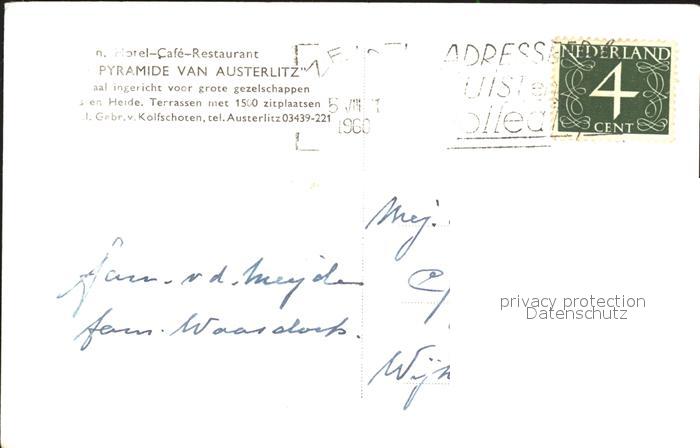 Hotel-Café-Restaurant
PYRAMIDE VAN AUSTERLITZ"
aal ingericht voor grote gezelschappen
en Heide. Terrassen met 1500 zitplaatsen
Gebr. v. Kolfschoten, tel. Austerlitz 03439-221
ADRESSEER
JUIST en
volledig
1960
NEDERLAND
4
CENT
Mej.
fam. v.d. Meijden
fam. Waasdorp.
Wijk
privacy protection
Datenschutz